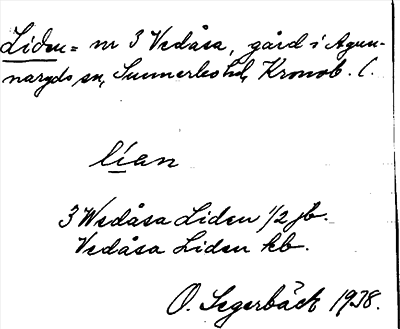 Liden = nr 3 Vedåsa, gård i Agun-
naryds sn, Sunnerbo hd, Kronob. l.
lían
3 Wedåsa Liden 1/2 jb.
Vedåsa Liden kb.
O. Segerbäck 1938.